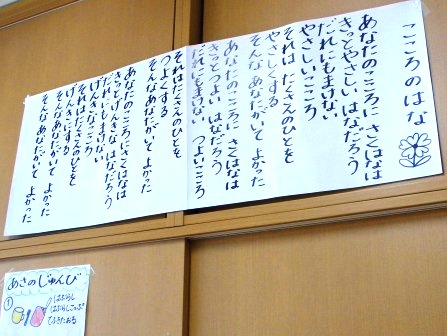 こころのはな
あなたのこころに さくはなは
きっとやさしい はなだろう
だれにもまけない
やさしいこころ
それは たくさんのひとを
やさしくする
そんな あなたがいて よかった
あなたのこころに さくはなは
きっとつよい はなだろう
だれにもまけない つよいこころ
それはたくさんのひとを
つよくする
そんなあなたがいて よかった
あなたのこころにさくはなは
きっとげんきな はなだろう
だれにもまけない
げんきなこころ
それはたくさんのひとを
げんきにする
そんなあなたがいて よかった
そんな あなたがいて よかった
あさのじゅんび
①
はぶらし
はぶらしこっぷ
てふきたおる